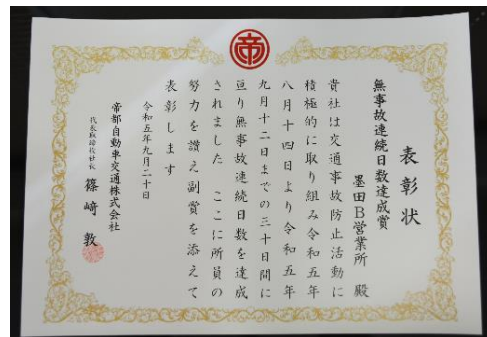 表彰状
無事故連続日数達成賞
墨田B営業所 殿
貴社は交通事故防止活動に
積極的に取り組み令和五年
八月十四日より令和五年
九月十二日までの三十日間に
亘り無事故連続日数を達成
されました ここに所員の
努力を讃え副賞を添えて
表彰します
令和五年九月二十日
帝都自動車交通株式会社
代表取締役社長 篠﨑 敦